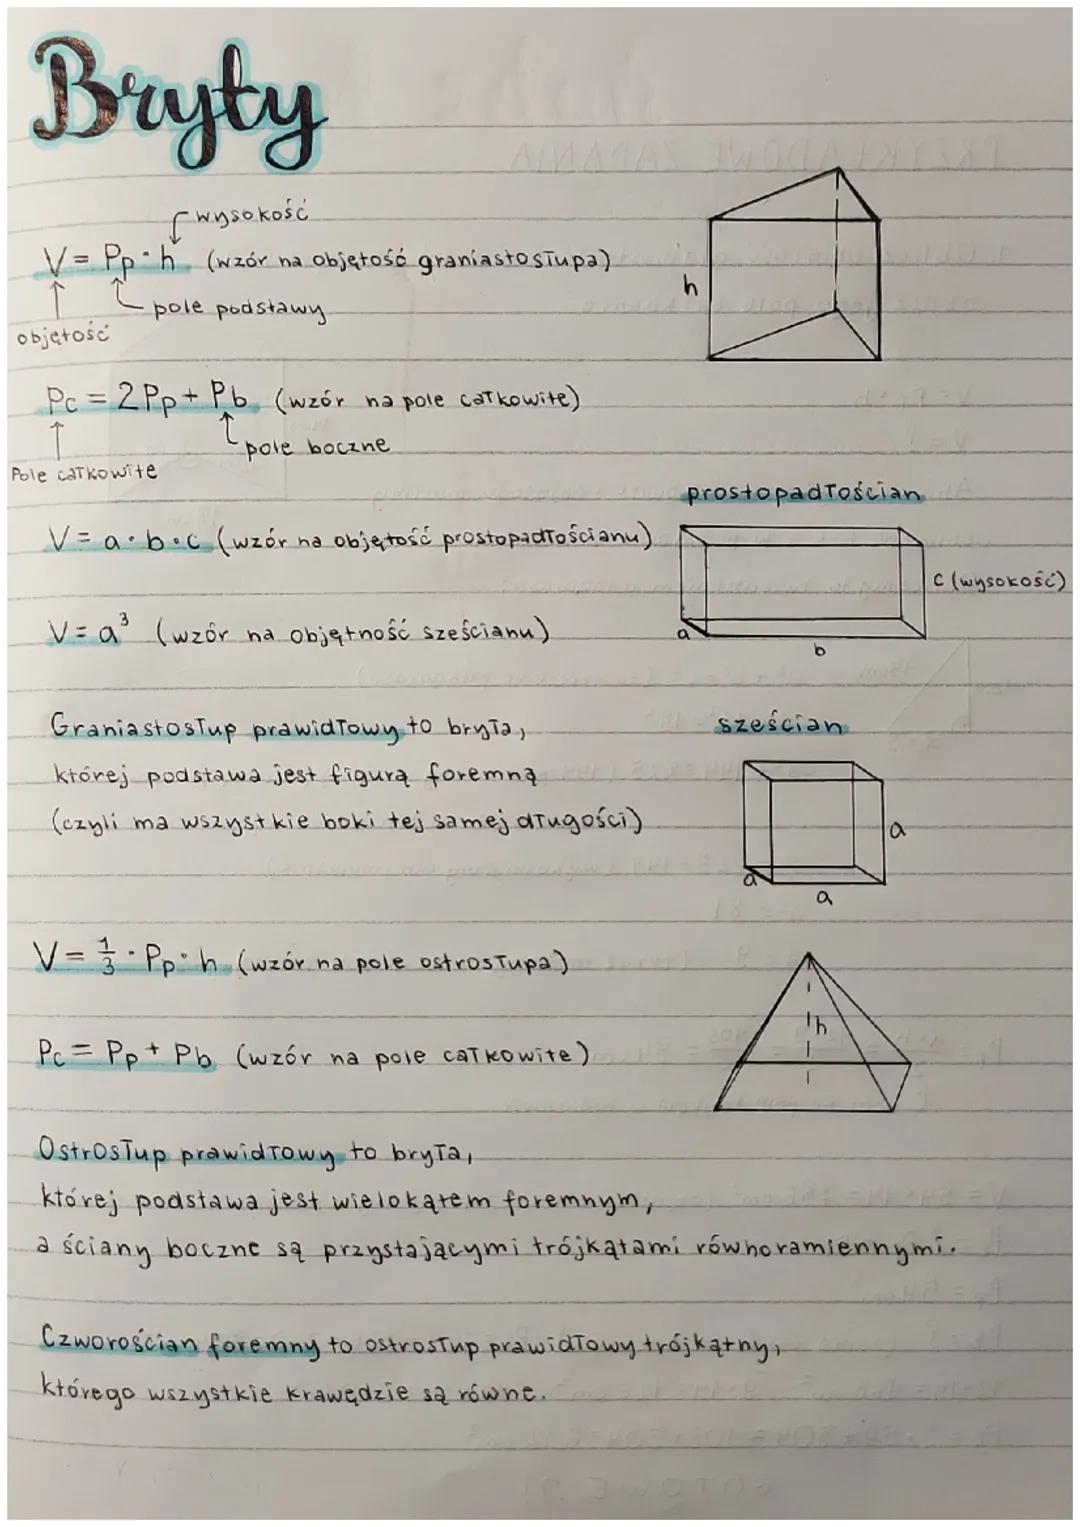 Bryły
wysokość
V = Pp · h (wzór na objętość graniastosłupa)
pole podstawy
objętość
h
Pc = 2Pp + Pb (wzór na pole całkowite)
pole boczne
Pole całkowite
prostopadłościan
V = a · b · c (wzór na objętość prostopadłościanu)
c (wysokość)
a
b
V = a³ (wzór na objętność sześcianu)
Graniastosłup prawidłowy to bryła,
której podstawa jest figurą foremną
(czyli ma wszystkie boki tej samej długości)
sześcian
a
a
a
V = 1/3 · Pp · h (wzór na pole ostrosłupa)
h
Pc = Pp + Pb (wzór na pole całkowite)
Ostrosłup prawidłowy to bryła,
której podstawa jest wielokątem foremnym,
a ściany boczne są przystającymi trójkątami równoramiennymi.
Czworościan foremny to ostrosłup prawidłowy trójkątny,
którego wszystkie krawędzie są równe.